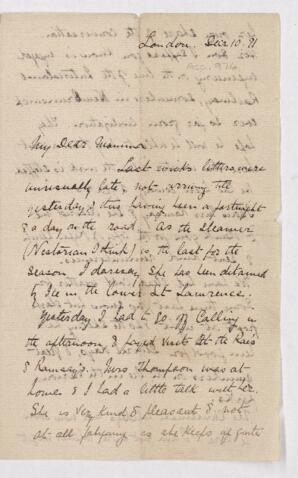 London. Dec 10. 91
My Dear Mamma
Last weeks letters were
unusually late, not arriving till
yesterday, & thus having been a fortnight
& a day on the road. As the steamer
(Vestorian I think) is the last for the
season I daresay she has been detained
by Ice in the Lower St Lawrence.
Yesterday I had to go off Calling in
the afternoon & payed visits at the Rae's
& Ramsay's. Mrs Thompson was at
home & I had a little talk with her.
She is very kind & pleasant & not
at all fatiguing as she keeps up quite